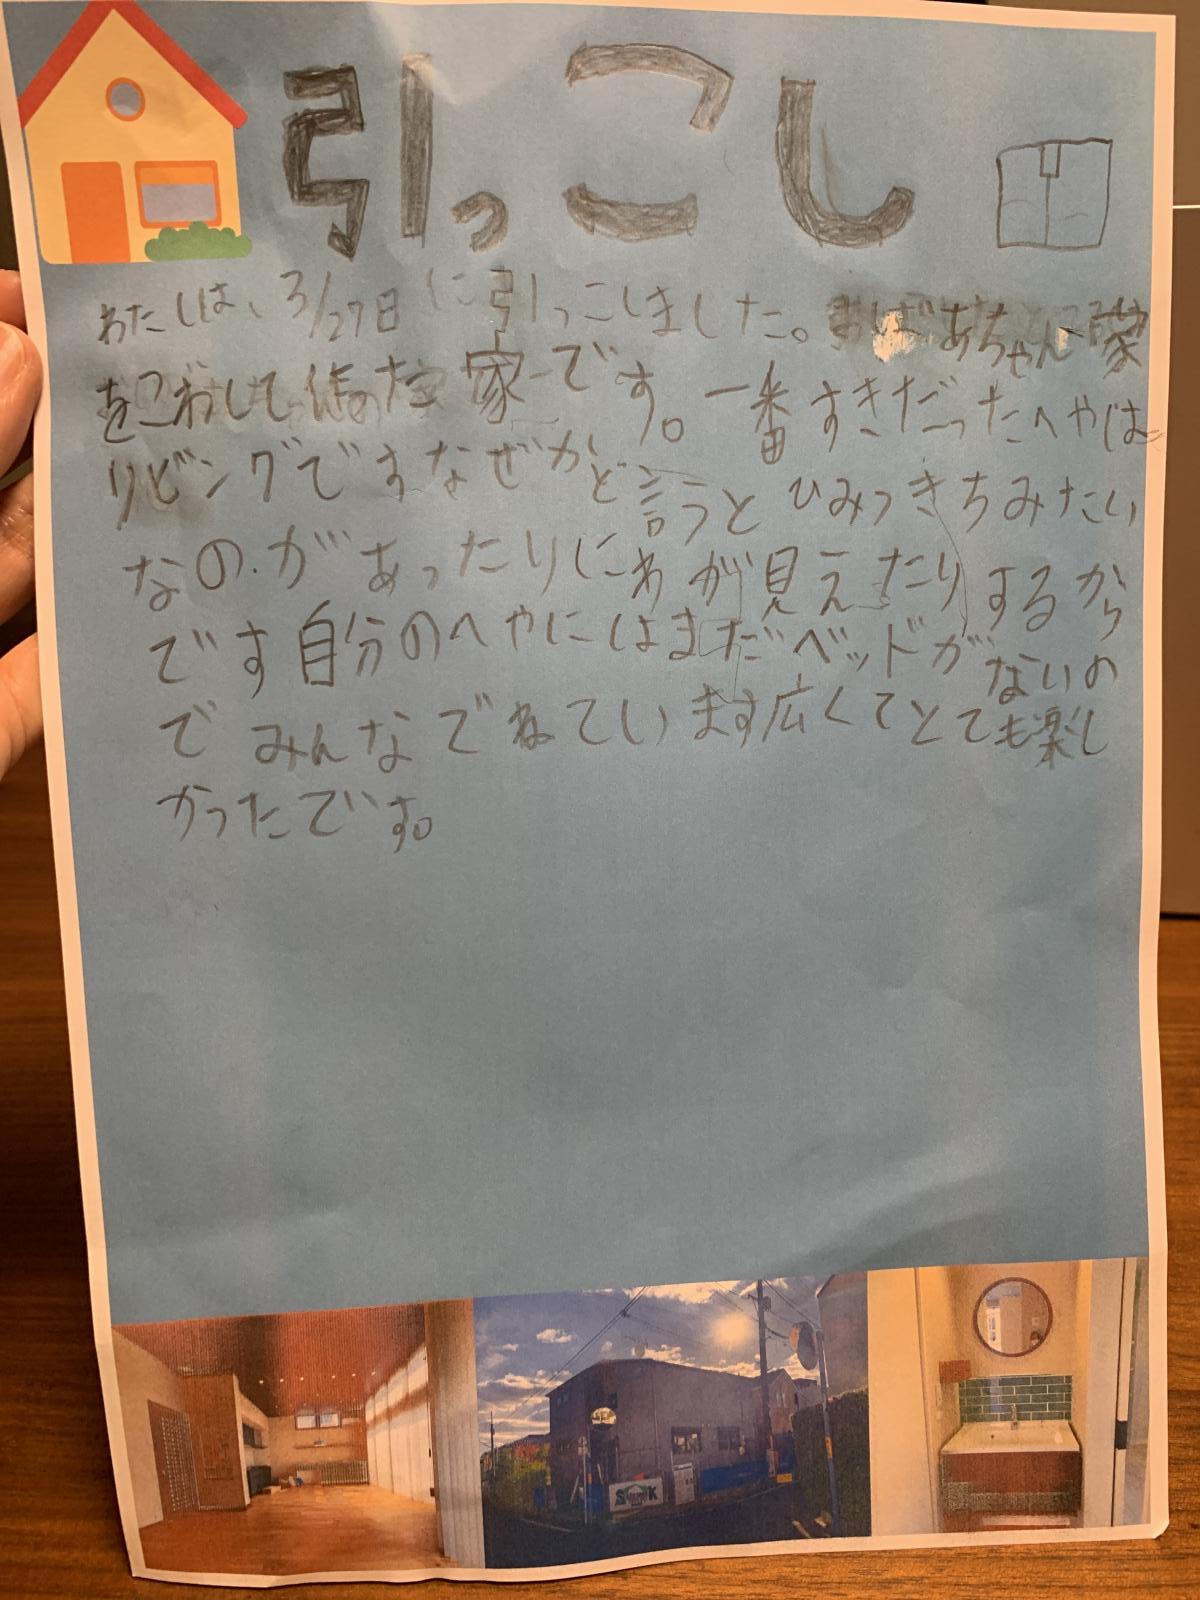 引っこし
わたしは、3/27日に引っこしました。おばあちゃん家
をこわして作った家です。一番すきだったへやは
リビングですなぜかと言うとひみつきちみたい
なのがあったりにわが見えたりするから
です自分のへやにはまだベッドがないの
でみんなでねています広くてとても楽し
かったです。